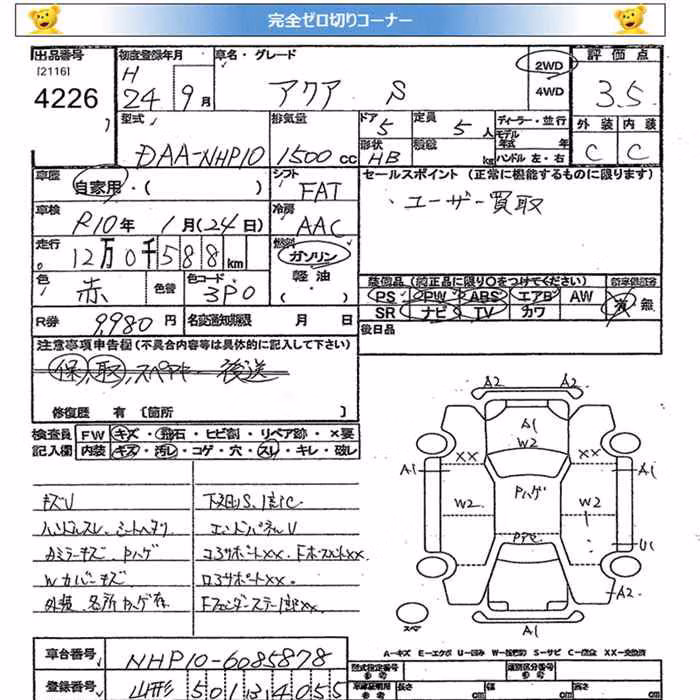 完全ゼロ切りコーナー
出品番号 初度登録年月 車名・グレード 2WD 評価点
[2116] H
4226 24年 9月 アクア S 4WD 3.5
型式 排気量 ドア 5 定員 5人 ディーラー・並行 外装 内装
モデル年式 年
DAA-NHP10 1500cc 形状 HB 積載 kg ハンドル 左・右 C C
車歴 自家用・( ) シフト FAT セールスポイント(正常に機能するものに限ります)
車検 R10年 1月(24日) 冷房 AAC ・ユーザー買取
走行 12万0千588km 燃料 ガソリン
軽油
・( )
色 赤 色替 色コード 3P0 装備品(純正品に限り○をつけてください) 新車保証書
PS PW ABS エアB AW 有 無
SR ナビ TV カワ
R券 9,980円 名変通知期限 月 日 後日品
注意事項申告欄(不具合内容等は具体的に記入して下さい)
保, 取, スペアキー 後送
修復歴 有 [箇所 ]
検査員 FW キズ・飛石・ヒビ割・リペア跡・×要
記入欄 内装 キズ・汚れ・コゲ・穴・スレ・キレ・破レ
キズU 下廻りS、1部C
ハンドルスレ、シートヘタリ エンドパネルU
Aミラーキズ、Pハゲ コアサポートXX、
Wカバーキズ ロアサポートXX、
外装 各所 ハゲ有 Fフェンダーステー1部XX
A2 A2
A1
W2
XX XX
A1 A1
Pハゲ
W2 W2 1
U1
A2
A1
スペア
A-キズ E-エクボ U-凹み W-補修跡 S-サビ C-腐食 XX-交換済
車台番号 NHP10-6085878 型式指定番号 参考 類別区分番号 参考
登録番号 山形 501 3 4055 長さ cm 幅 cm 高さ cm